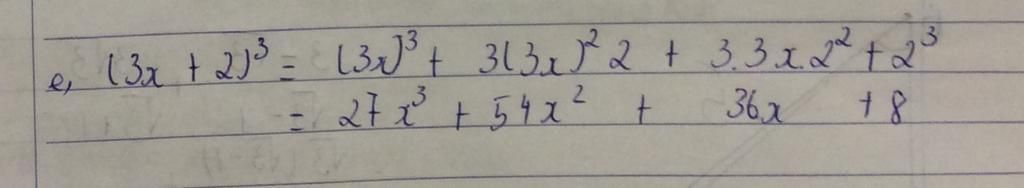 e, (3x + 2)³ = (3x)³ + 3(3x)² 2 + 3.3x.2² + 2³
= 27x³ + 54x² + 36x + 8